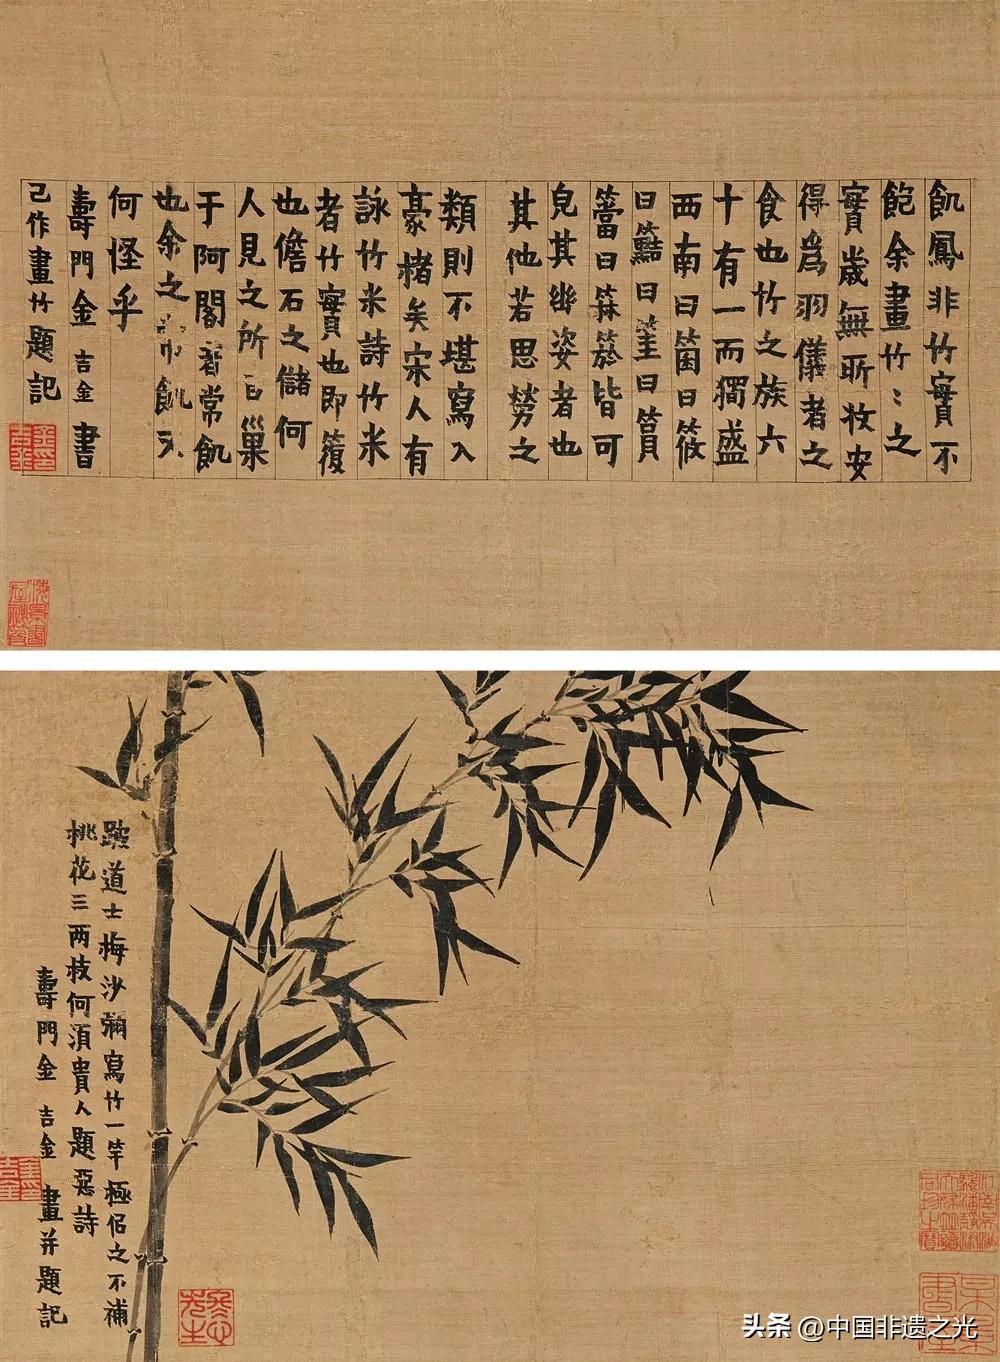 飢鳳非竹實不
飽余畫竹〻之
實歲無所收安
得爲羽儀者之
食也竹之族六
十有一而獨盛
西南曰箘曰筱
曰曰筀曰篔
簹曰箖箊皆可
皃其幽姿者也
其他若思簩之
類則不堪寫入
豪楮矣宋人有
詠竹米詩竹米
者竹實也即
也儋石之儲何
人見之所言巢
于阿閣者常飢
也余之飢又
何怪乎
壽門金吉金書
己作畫竹題記
道士梅沙彌寫竹一竿極侶之不補
桃花三两枝何須貴人題惡詩
壽門金吉金畫并題記
冬心先生
头条 @中国非遗之光